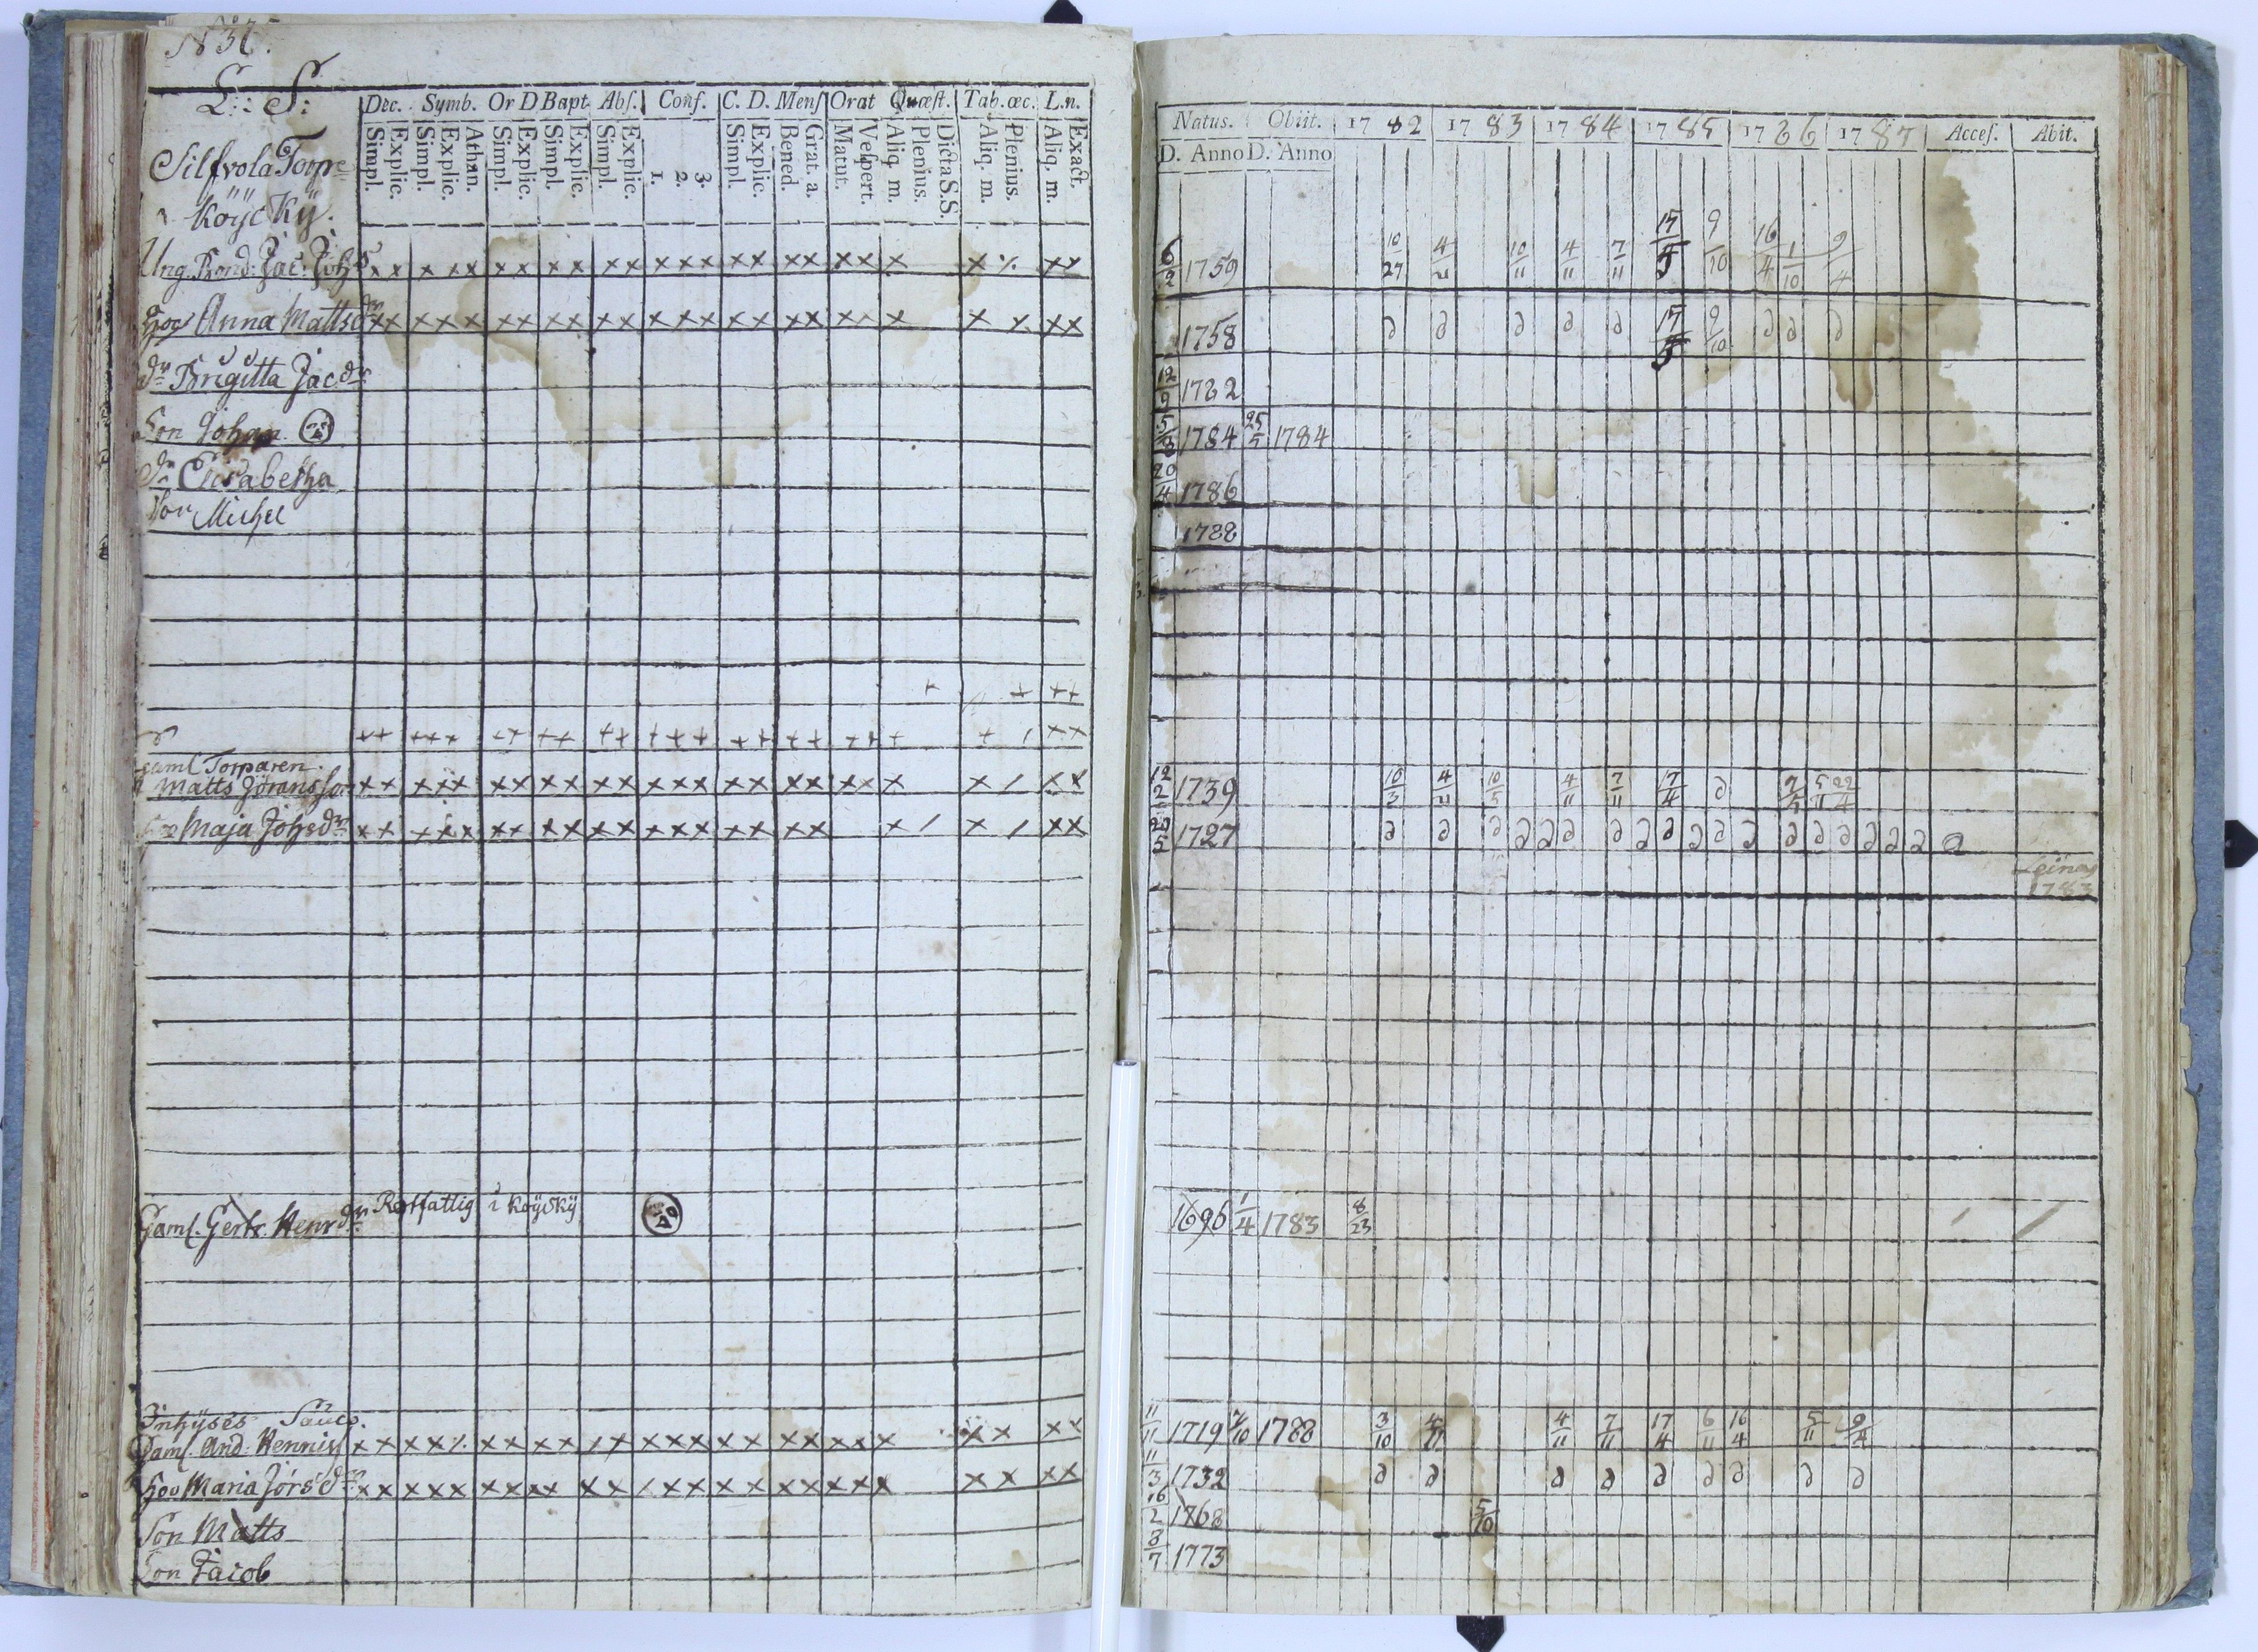 L: S:
Dec. Symb. Or D Bapt. Abſ. Conf. C. D. Menſ Orat Quæſt. Tab. œc. L.n.
Simpl. Explic. Simpl. Explic. Athan. Simpl. Explic. Simpl. Explic. Simpl. Explic. 1. 2. 3. Simpl. Explic. Bened. Grat. a. Matut. Veſpert. Aliq. m. Plenius. Dicta S.S. Aliq. m. Plenius. Aliq. m. Exact.
Silfvola Torp
Köyckÿ.
Ung. Bond. Jac: Joh
x x x x x x x x x x x x x x x x x x x x x x x x x
Anna Mattsdr
x x x x x x x x x x x x x x x x x x x x x x x x x
dr Brigitta Jacdr
Son Johan
dr Elisabetha
Son Michel
gaml Torparen
Matts Jöransson
x x x x x x x x x x x x x x x x x x x x x x / x x
Maja Johsdr
x x x x x x x x x x x x x x x x x x x / x / x x
Gaml. Gertr. Henrdr Rotfattig i Köyckÿ
Inhÿses
Gaml. And: Henniss
Hoo Maria Jörsdr
Son Matts
Son Jacob
Natus. Obiit. 17 82 17 83 17 84 17 85 17 86 17 87 Acceſ. Abit.
D. Anno D. Anno
6/2 1759 10/27 4/11 10/11 4/11 7/11 17/5 9/10 16/4 1/10 9/4
1758 d d d d d 17/5 9/10 d d d
12/9 1782
5/3 1784 25/5 1784
20/4 1786
1788
12/2 1739 10/3 4/11 10/5 4/11 7/11 17/4 d 2/5 5/11 22/4
20/5 1727 d d d d d d d d d d d d d d d d d d d
1783
1696 1/4 1783 8/23
11/11 1719 7/10 1788 3/10 4/11 4/11 7/11 17/4 6/11 16/4 5/11 9/4
11/3 1732 d d d d d d d d d
16/2 1768 5/10
8/7 1773